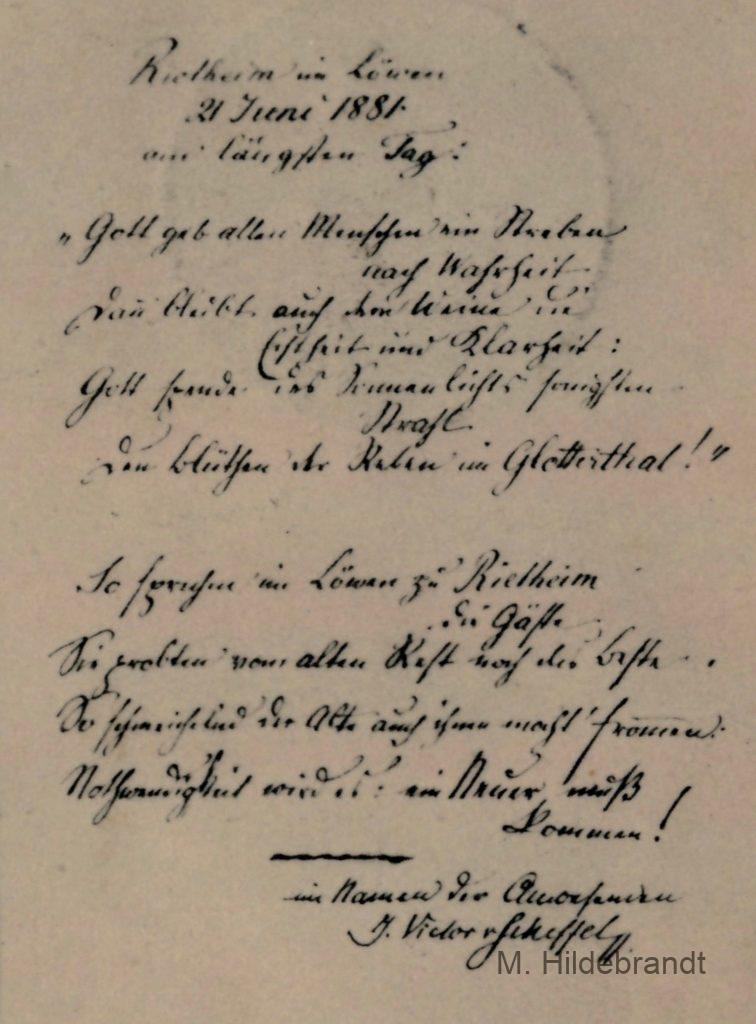 Rietheim im Löwen
21 Juni 1881.
am längsten Tag:
„Gott geb allen Menschen ein Streben
nach Wahrheit
Dañ bleibt auch dem Weine die
Echtheit und Klarheit:
Gott spende des Sonnenlichts sonnigsten
Strahl
Den Blüthen der Reben im Glotterthal!"
So sprachen im Löwen zu Rietheim
die Gäste
Sie probten vom alten Rest noch das Beste
So schmeichelnd der Alte auch ihnen mocht' from̅en:
Nothwendigkeit wird es: ein Neuer muß
kommen!
im Namen der Anwesenden
J. Victor v Scheffel
M. Hildebrandt